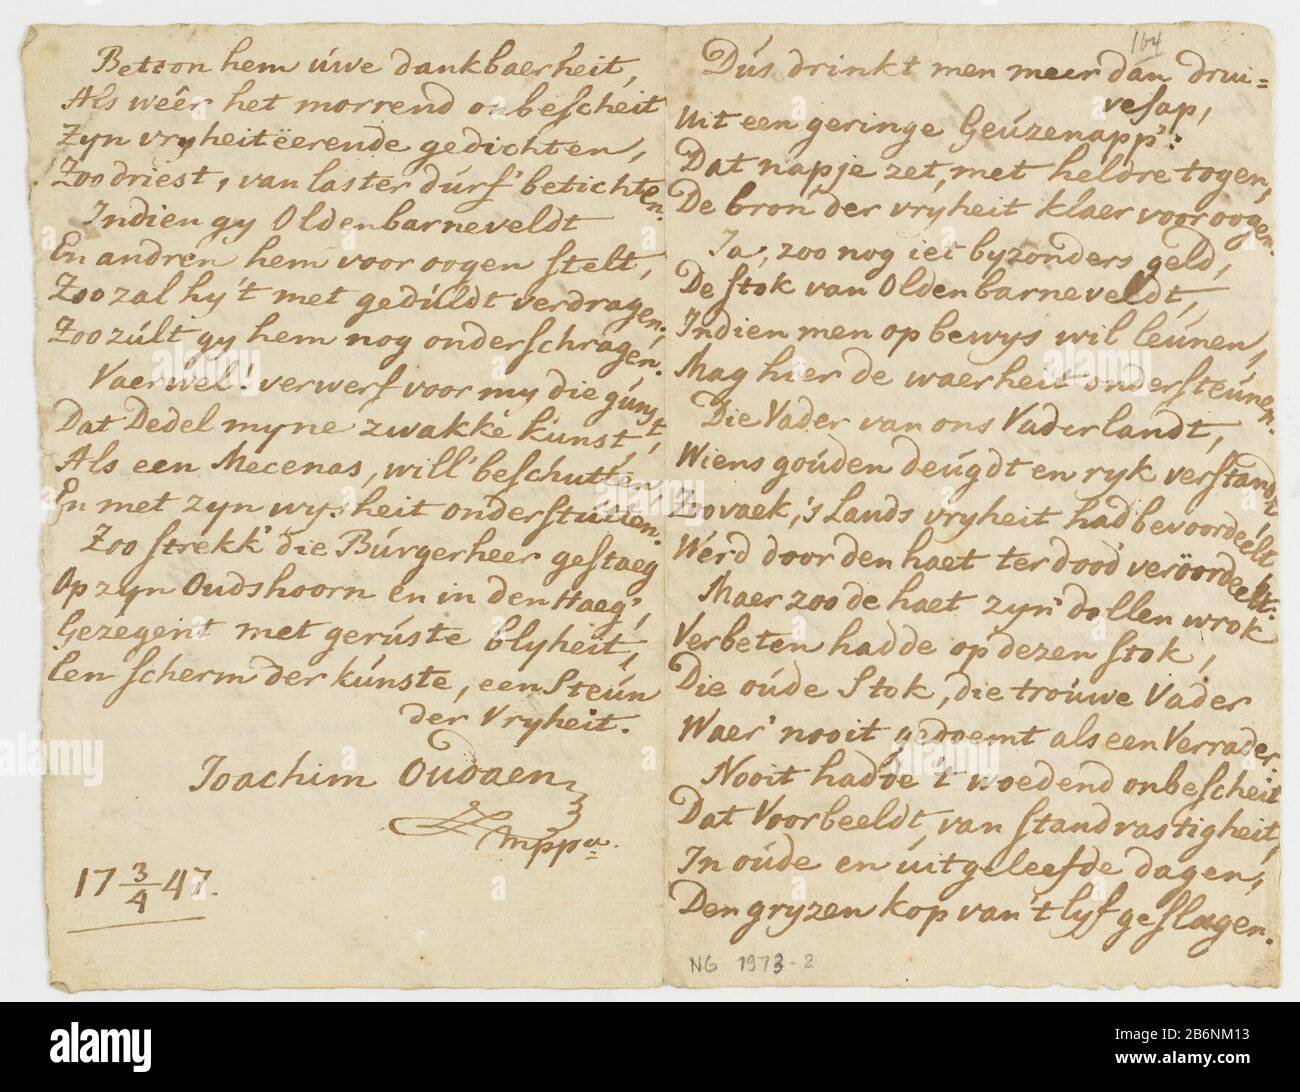 Betoon hem úwe dankbaerheit,
Als wêêr het morrend onbescheit
Zyn vryheitëerende gedichten,
Zoo driest, van laster dúrf' betichten.
Indien gy Oldenbarneveldt
En andren hem voor oogen stelt,
Zoo zal hy 't met gedúldt verdragen;
Zoo zúlt gy hem nog onderschragen.
Vaerwel! verwerf voor my die gúnst,
Dat Dedel myne zwakke kúnst,
Als een Mecenas, will' beschutten,
En met zyn wysheit onderstútten.
Zoo strekk' die Búrgerheer gestaeg
Op zyn Oudshoorn en in den Haeg',
Gezegent met gerúste blyheit,
Een scherm der kúnste, een Steún
der Vryheit.
Joachim Oudaen
mppa.
17 3/4 47.
164
Dús drinkt men meer dan drui=
vesap,
Uit een geringe Geúzenapp':
Dat napje zet, met heldre togen,
De bron der vryheit klaer voor oogen.
Ja, zoo nog iet byzonders geld,
De stok van Oldenbarneveldt,
Indien men op bewys wil leúnen,
Mag hier de waerheit ondersteúnen.
Die Vader van ons Vaderlandt,
Wiens goúden deúgdt en ryk verstandt
Zoo vaek, 's Lands vryheit had bevoordeelt,
Werd door den haet ter dood veröordeelt.
Maer zoo de haet zyn' dollen wrok
Verbeten hadde op dezen stok,
Die oúde Stok, die troúwe Vader
Waer' nooit gedoemt als een Verrader.
Nooit hadde 't woedend onbescheit
Dat Voorbeeldt, van standvastigheit,
In oúde en úitgeleefde dagen,
Den gryzen kop van 't lyf geslagen.
NG 1973-2
alamy
Image ID: B6NM13
www.alamy.com